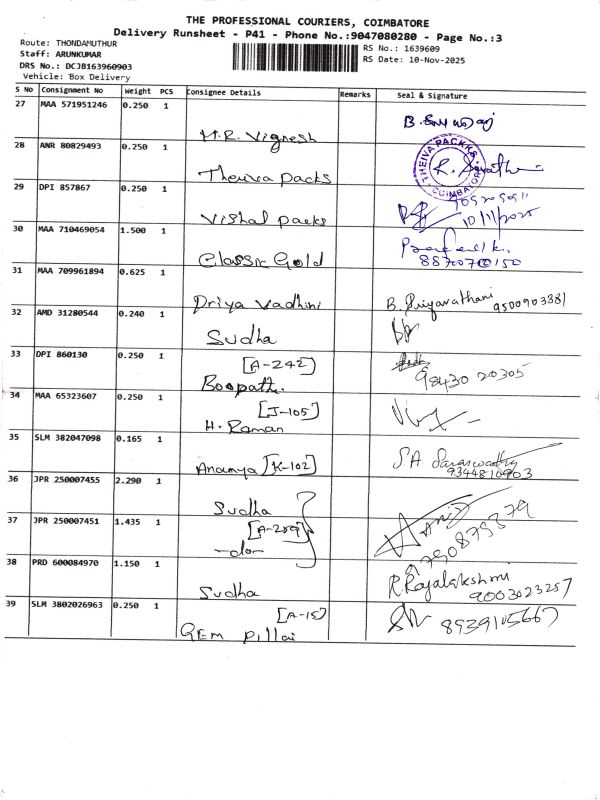 THE PROFESSIONAL COURIERS, COIMBATORE
Delivery Runsheet - P41 - Phone No.:9047080280 - Page No.:3
Route: THONDAMUTHUR
RS No.: 1639609
Staff: ARUNKUMAR
RS Date: 10-Nov-2025
DRS No.: DCJB163960903
Vehicle: Box Delivery
S No Consignment No Weight PCS Consignee Details Remarks Seal & Signature
27 MAA 571951246 0.250 1
H.R. Vignesh
28 ANR 80829493 0.250 1
THEIVA PACKKS COIMBATORE
Theiva packs
29 DPI 857867 0.250 1
Vishal packs 10/11/2025
30 MAA 710469054 1.500 1
Classic Gold
31 MAA 709961894 0.625 1
Priya Vadhini B. Priyavathani 9500903381
32 AMD 31280544 0.240 1
Sudha
33 DPI 860130 0.250 1
[A-242]
Boopathi. 98430 20305
34 MAA 65323607 0.250 1
[J-105]
H. Raman
35 SLM 382047098 0.165 1
Ananya [K-102] S A Saraswathy
9344810903
36 JPR 250007455 2.290 1
Sudha
37 JPR 250007451 1.435 1
[A-289]
-do- 9790879379
38 PRD 600084970 1.150 1
Sudha R. Rajalakshmi
9003023257
39 SLM 3802026963 0.250 1
[A-15]
GEM Pillai 8939105667